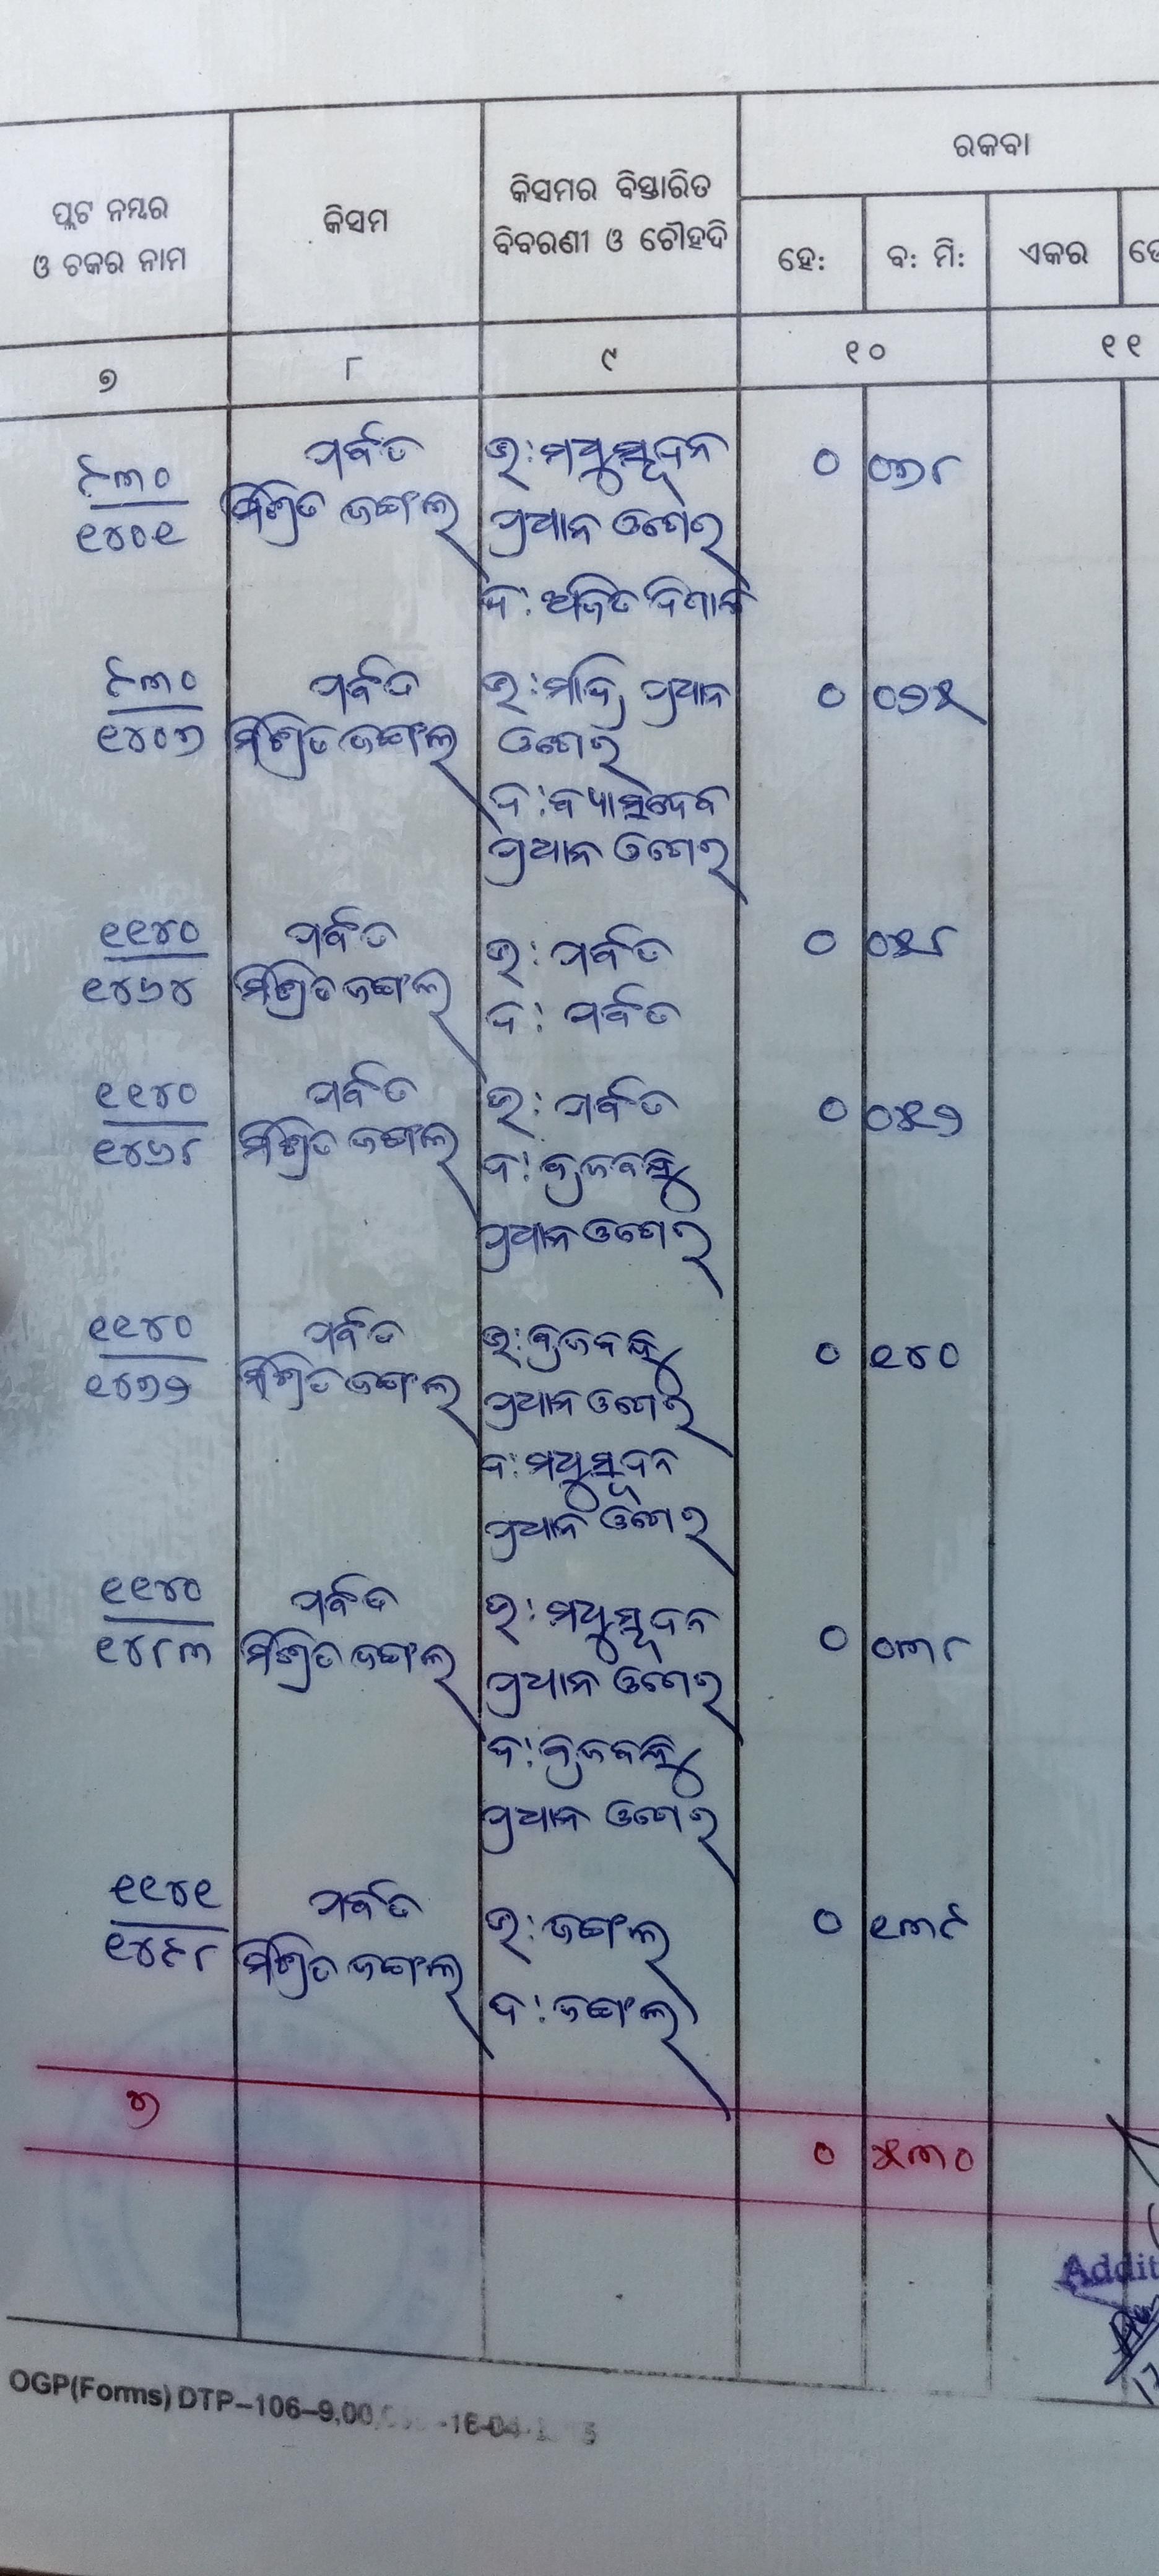 ରକବା
ପ୍ଲଟ ନମ୍ବର
ଓ ଚକର ନାମ
କିସମ
କିସମର ବିସ୍ତାରିତ
ବିବରଣୀ ଓ ଚୌହଦି
ହେ: ବ: ମି: ଏକର
୭ ୮ ୯ ୧୦ ୧୧
୯୩୦ ପର୍ବତ ଉ:ମଧୁସୂଦନ ୦ ୦୭୮
୧୪୦୧ ମିଶ୍ରିତ ଜଙ୍ଗଲ ପ୍ରଧାନ ଓଗେର
ଦ: ଅଜିତ
୯୩୦ ପର୍ବତ ଉ:ମାଦ୍ରି ପ୍ରଧାନ ୦ ୦୨୫
୧୪୦୭ ମିଶ୍ରିତ ଜଙ୍ଗଲ ଓଗେର
ଦ:ବ୍ୟାସଦେବ
ପ୍ରଧାନ ଓଗେର
୧୧୪୦ ପର୍ବତ ଉ: ପର୍ବତ ୦ ୦୫୮
୧୪୬୪ ମିଶ୍ରିତ ଜଙ୍ଗଲ ଦ: ପର୍ବତ
୧୧୪୦ ପର୍ବତ ଉ: ପର୍ବତ ୦ ୦୫୨
୧୪୬୮ ମିଶ୍ରିତ ଜଙ୍ଗଲ ଦ: ବ୍ରଜବନ୍ଧୁ
ପ୍ରଧାନ ଓଗେର
୧୧୪୦ ପର୍ବତ ଉ:ବ୍ରଜବନ୍ଧୁ ୦ ୧୪୦
୧୪୭୨ ମିଶ୍ରିତ ଜଙ୍ଗଲ ପ୍ରଧାନ ଓଗେର
ଦ:ମଧୁସୂଦନ
ପ୍ରଧାନ ଓଗେର
୧୧୪୦ ପର୍ବତ ଉ: ମଧୁସୂଦନ ୦ ୦୩୮
୧୪୮୩ ମିଶ୍ରିତ ଜଙ୍ଗଲ ପ୍ରଧାନ ଓଗେର
ଦ:ବ୍ରଜବନ୍ଧୁ
ପ୍ରଧାନ ଓଗେର
୧୧୪୧ ପର୍ବତ ଉ:ଜଙ୍ଗଲ ୦ ୧୩୯
୧୪୯୮ ମିଶ୍ରିତ ଜଙ୍ଗଲ ଦ:ଜଙ୍ଗଲ
୭ ୦ ୫୩୦
OGP(Forms) DTP-106-9,00